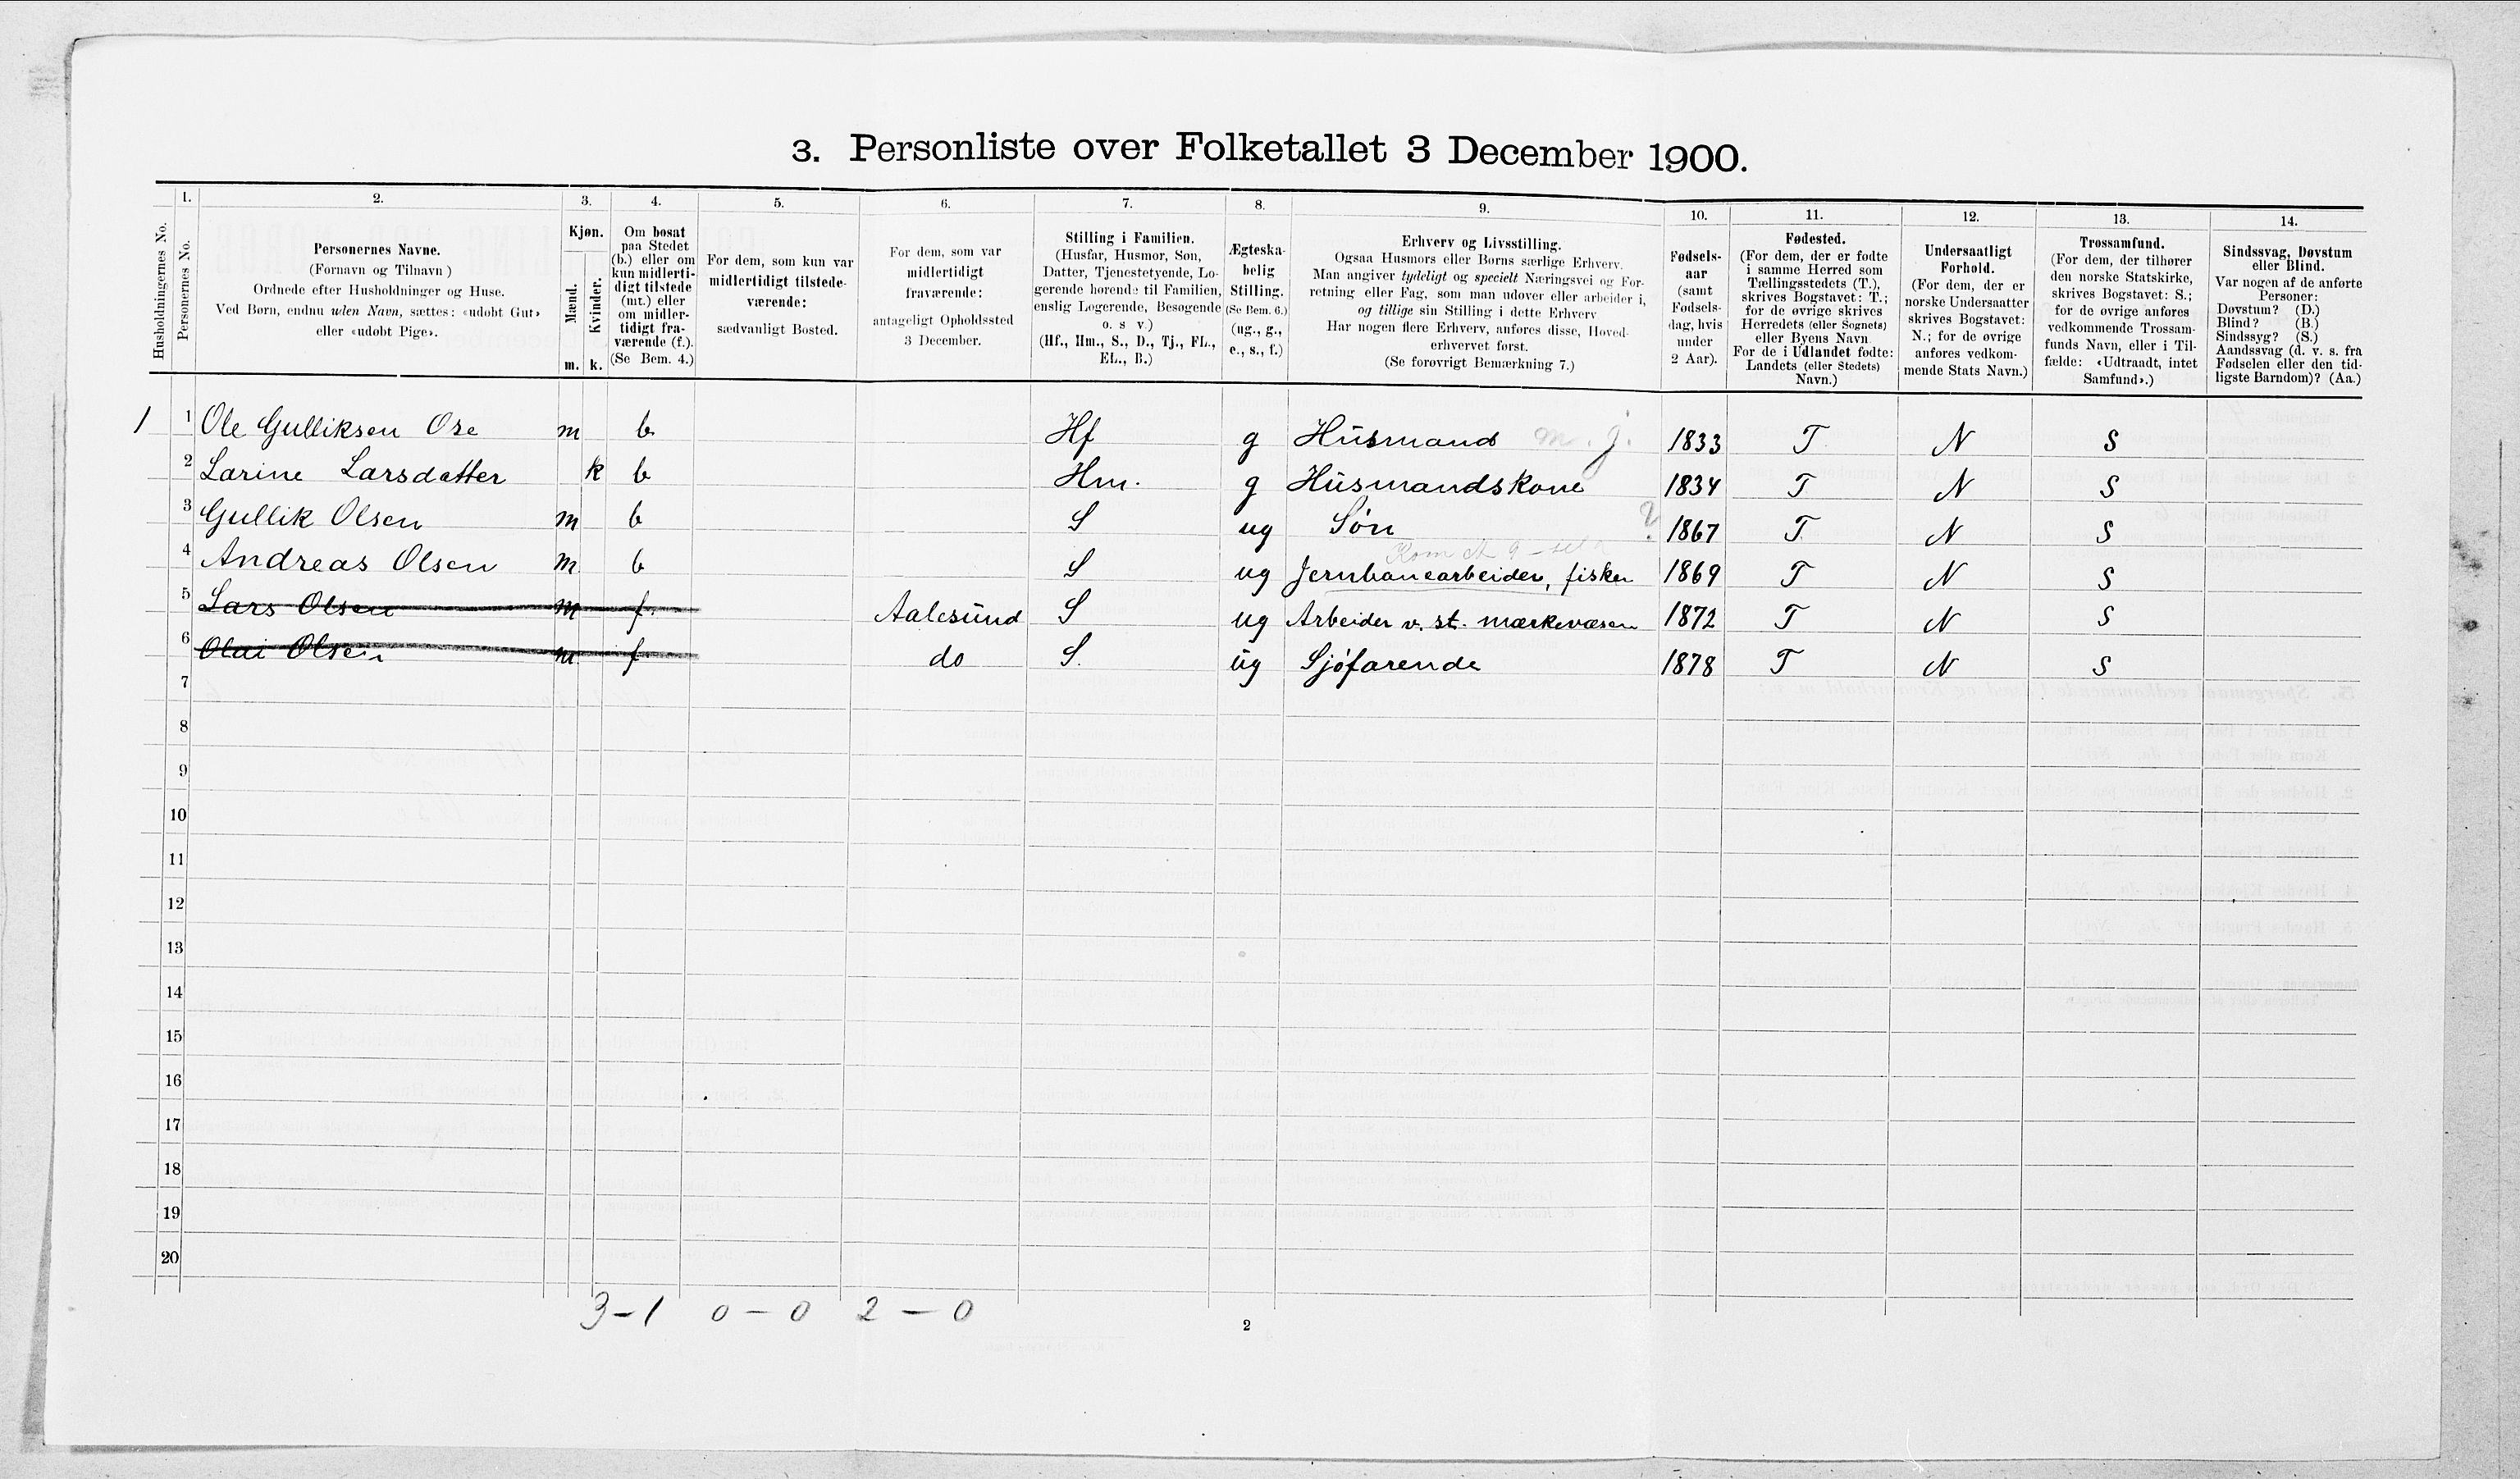 3. Personliste over Folketallet 3 December 1900.
Husholdningernes No.
1.
Personernes No.
2.
Personernes Navne.
(Fornavn og Tilnavn)
Ordnede efter Husholdninger og Huse.
Ved Børn, endnu uden Navn, sættes: «udøbt Gut»
eller «udøbt Pige».
3.
Kjøn.
Mænd.
Kvinder.
m. k.
4.
Om bosat
paa Stedet
(b.) eller om
kun midlerti-
digt tilstede
(mt.) eller
om midler-
tidigt fra-
værende (f.).
(Se Bem. 4.)
5.
For dem, som kun var
midlertidigt tilstede-
værende:
sædvanligt Bosted.
6.
For dem, som var
midlertidigt
fraværende:
antageligt Opholdssted
3 December.
7.
Stilling i Familien.
(Husfar, Husmor, Søn,
Datter, Tjenestetyende, Lo-
gerende hørende til Familien,
enslig Logerende, Besøgende
o. s v.)
(Hf., Hm., S., D., Tj., FL.,
EL., B.)
8.
Ægteska-
belig
Stilling.
(Se Bem. 6.)
(ug., g.,
e., s., f.)
9.
Erhverv og Livsstilling.
Ogsaa Husmors eller Børns særlige Erhverv.
Man angiver tydeligt og specielt Næringsvei og For-
retning eller Fag, som man udøver eller arbeider i,
og tillige sin Stilling i dette Erhverv
Har nogen flere Erhverv, anføres disse, Hoved-
erhvervet først.
(Se forøvrigt Bemærkning 7.)
10.
Fødsels-
aar
(samt
Fødsels-
dag, hvis
under
2 Aar).
11.
Fødested.
(For dem, der er fødte
i samme Herred som
Tællingsstedets (T.),
skrives Bogstavet: T.;
for de øvrige skrives
Herredets (eller Sognets)
eller Byens Navn
For de i Udlandet fødte:
Landets (eller Stedets)
Navn.)
12.
Undersaatligt
Forhold.
(For dem, der er
norske Undersaatter
skrives Bogstavet:
N.; for de øvrige
anføres vedkom-
mende Stats Navn.)
13.
Trossamfund.
(For dem, der tilhører
den norske Statskirke,
skrives Bogstavet: S.;
for de øvrige anføres
vedkommende Trossam-
funds Navn, eller i Til-
fælde: «Udtraadt, intet
Samfund».)
14.
Sindssvag, Døvstum
eller Blind.
Var nogen af de anførte
Personer:
Døvstum? (D.)
Blind? (B.)
Sindssyg? (S.)
Aandssvag (d. v. s. fra
Fødselen eller den tid-
ligste Barndom)? (Aa.)
1 1 Ole Gulliksen Ose m b Hf g Husmand m. j. 1833 T N S
2 Larine Larsdatter k b Hm. g Husmandskone 1834 T N S
3 Gullik Olsen m b S ug Søn ? 1867 T N S
4 Andreas Olsen m b S ug Jernbanearbeider, fisker 1869 T N S
5 Lars Olsen m f. Aalesund S ug Arbeider v. st. mærkevæsen 1872 T N S
6 Olai Olsen m f do S. ug Sjøfarende 1878 T N S
7
8
9
10
11
12
13
14
15
16
17
18
19
20
3 – 1 0 – 0 2 – 0
2